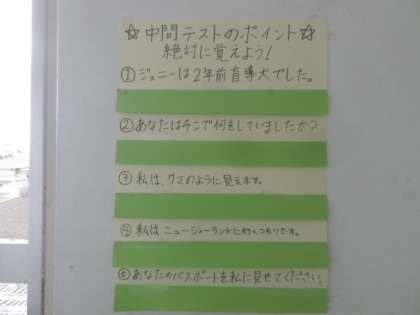 ☆中間テストのポイント☆
絶対に覚えよう!
①ジェニーは2年前盲導犬でした。
②あなたはそこで何をしていましたか?
③私は、クマのように見えます。
④私は、ニュージーランドに行くつもりです。
⑤あなたのパスポートを私に見せてください。